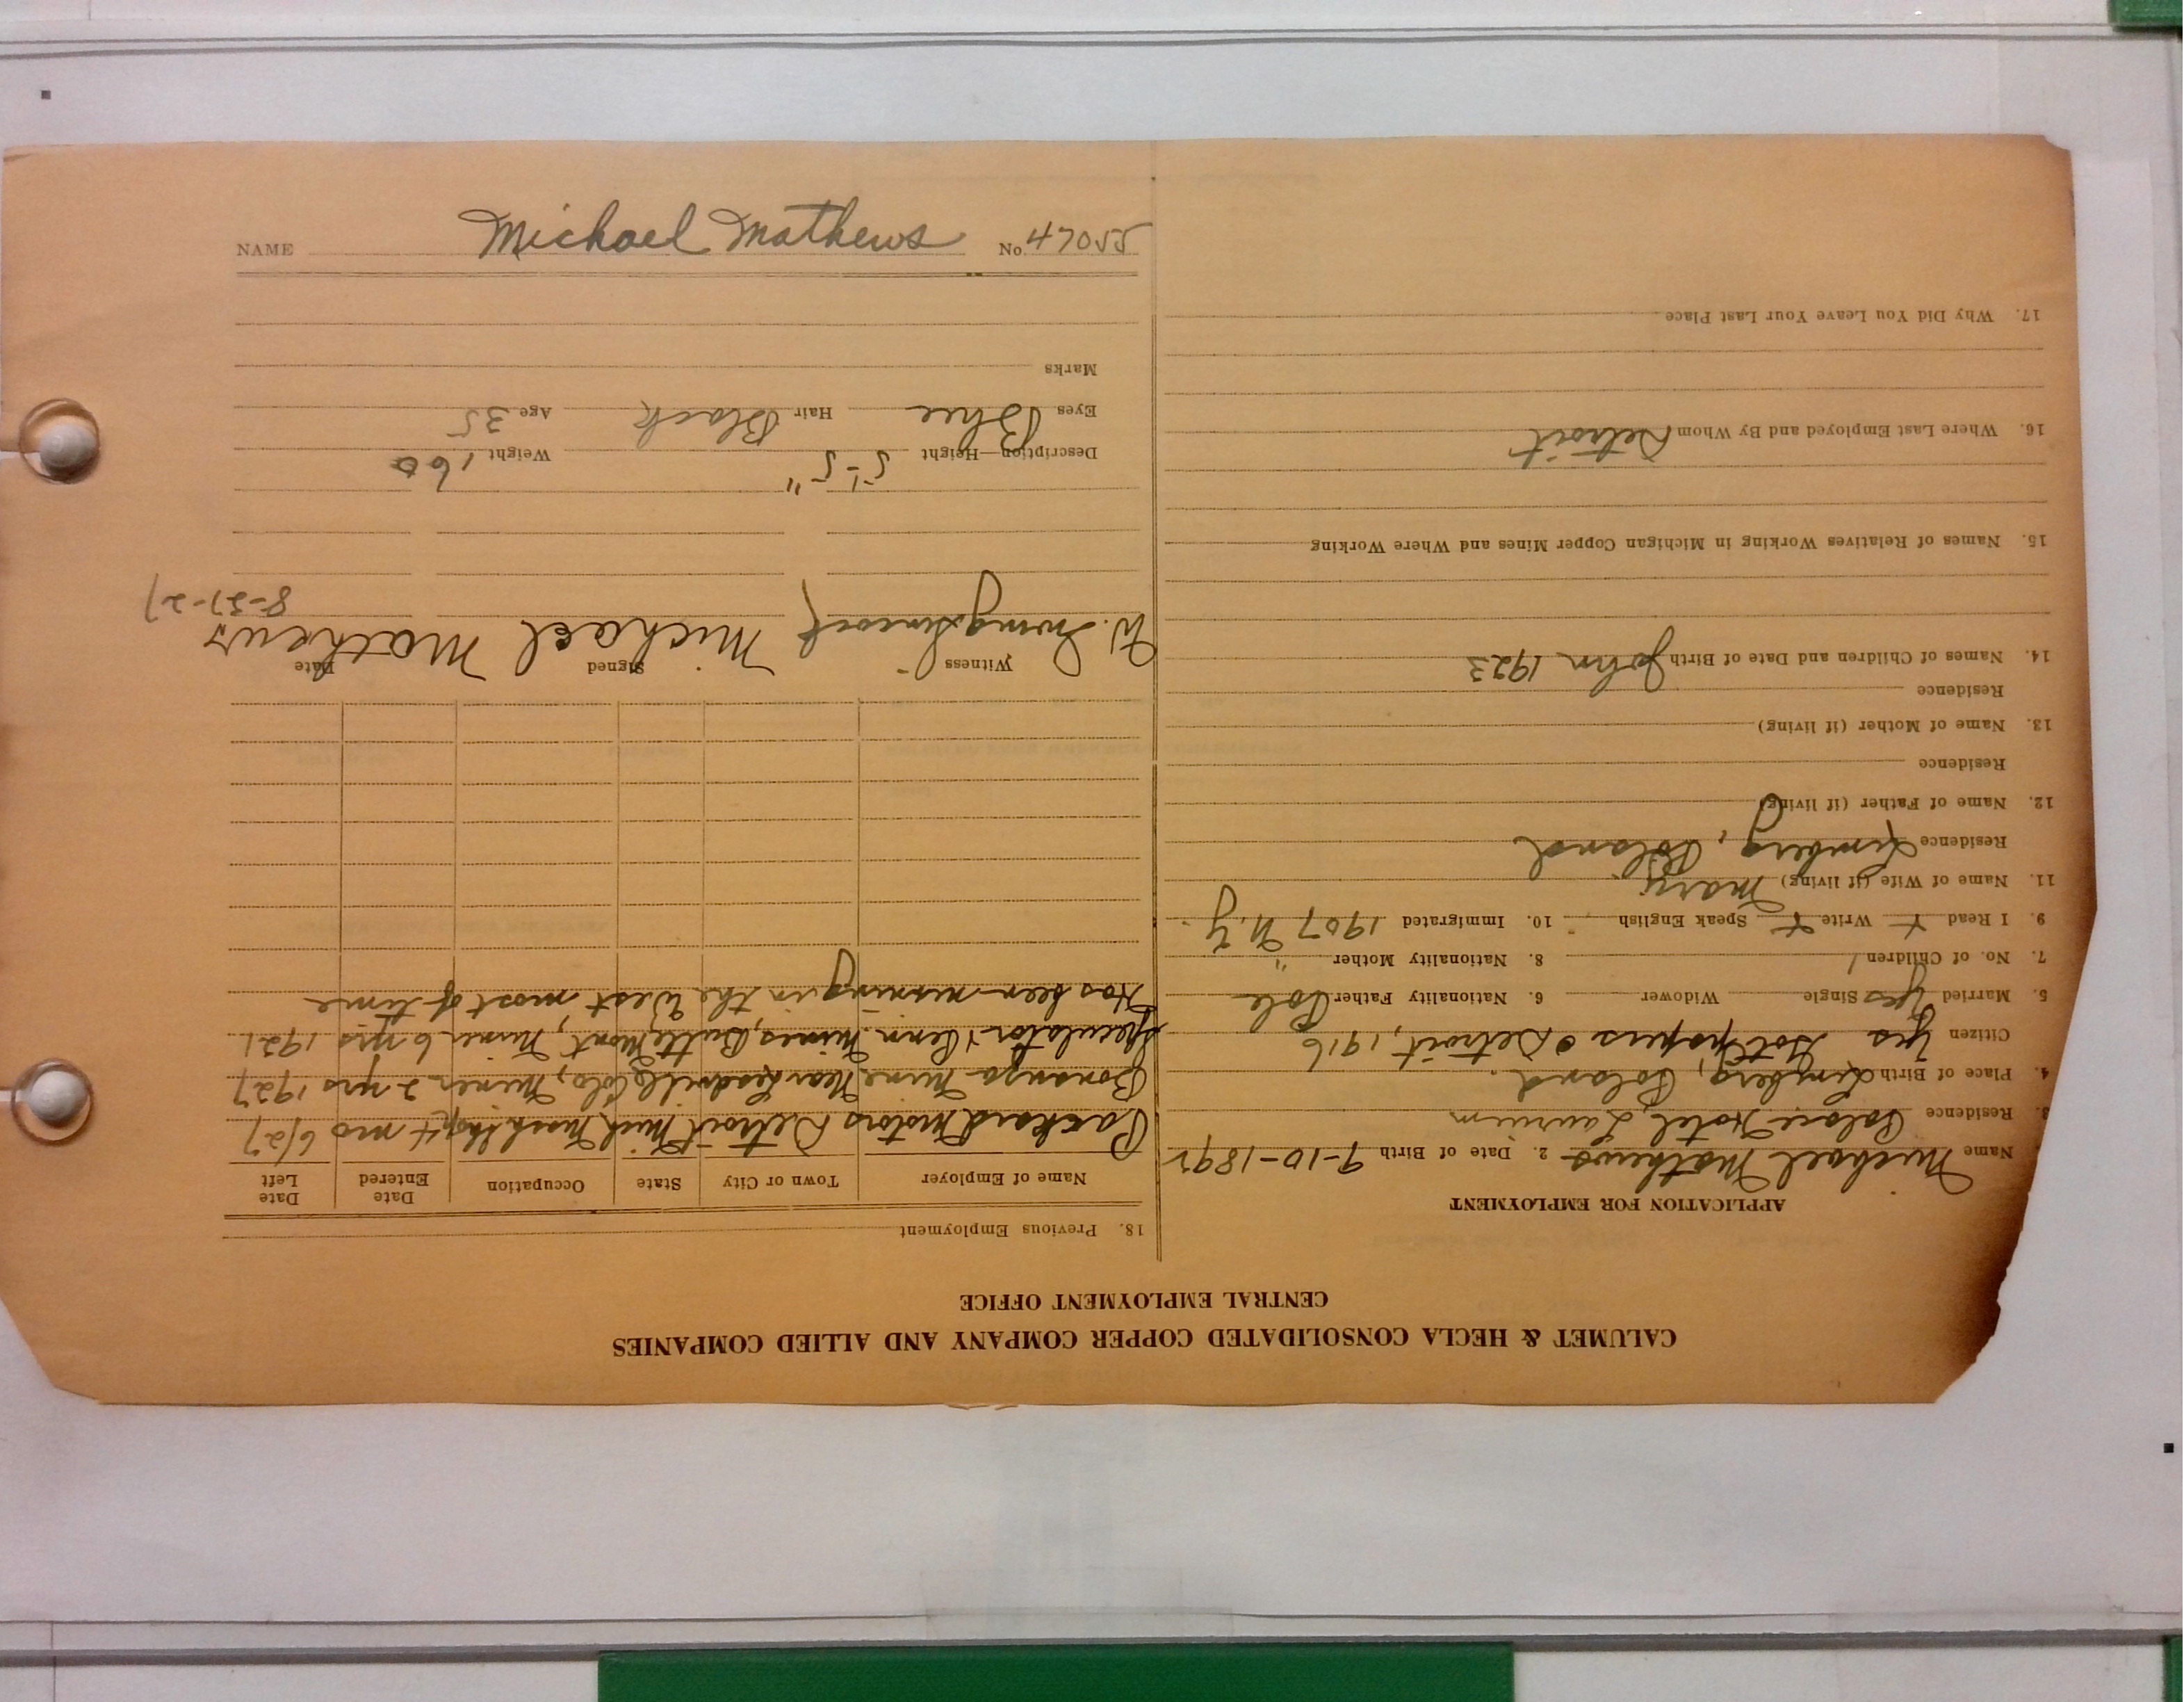 CALUMET & HECLA CONSOLIDATED COPPER COMPANY AND ALLIED COMPANIES
CENTRAL EMPLOYMENT OFFICE
APPLICATION FOR EMPLOYMENT
Name Michael Mathews 2. Date of Birth 9-10-1892
3. Residence Palace Hotel, Laurium
4. Place of Birth Lemberg, Poland.
Citizen Yes Got papers Detroit, 1916
5. Married Yes Single Widower 6. Nationality Father Pole
7. No. of Children 1 8. Nationality Mother "
9. I Read + Write + Speak English 10. Immigrated 1907 N.Y.
11. Name of Wife (if living) Mary
Residence Lemberg, Poland
12. Name of Father (if living)
Residence
13. Name of Mother (if living)
Residence
14. Names of Children and Date of Birth John 1923
15. Names of Relatives Working in Michigan Copper Mines and Where Working
16. Where Last Employed and By Whom Detroit
17. Why Did You Leave Your Last Place
18. Previous Employment
Name of Employer Town or City State Occupation Date Entered Date Left
Packard Motors Detroit Mich mo 6/27
Bonanza Mine Near Leadville Colo, Miner 2 yrs 1927
Speculator & Penn. Mines, Butte Mont, Miner 6 yrs 1921
Has been mining in the West most of time
Witness Signed Date
W. Michael Mathews 8-27-27
Description—Height 5'-5" Weight 160
Eyes Blue Hair Black Age 35
Marks
NAME Michael Mathews No. 47055